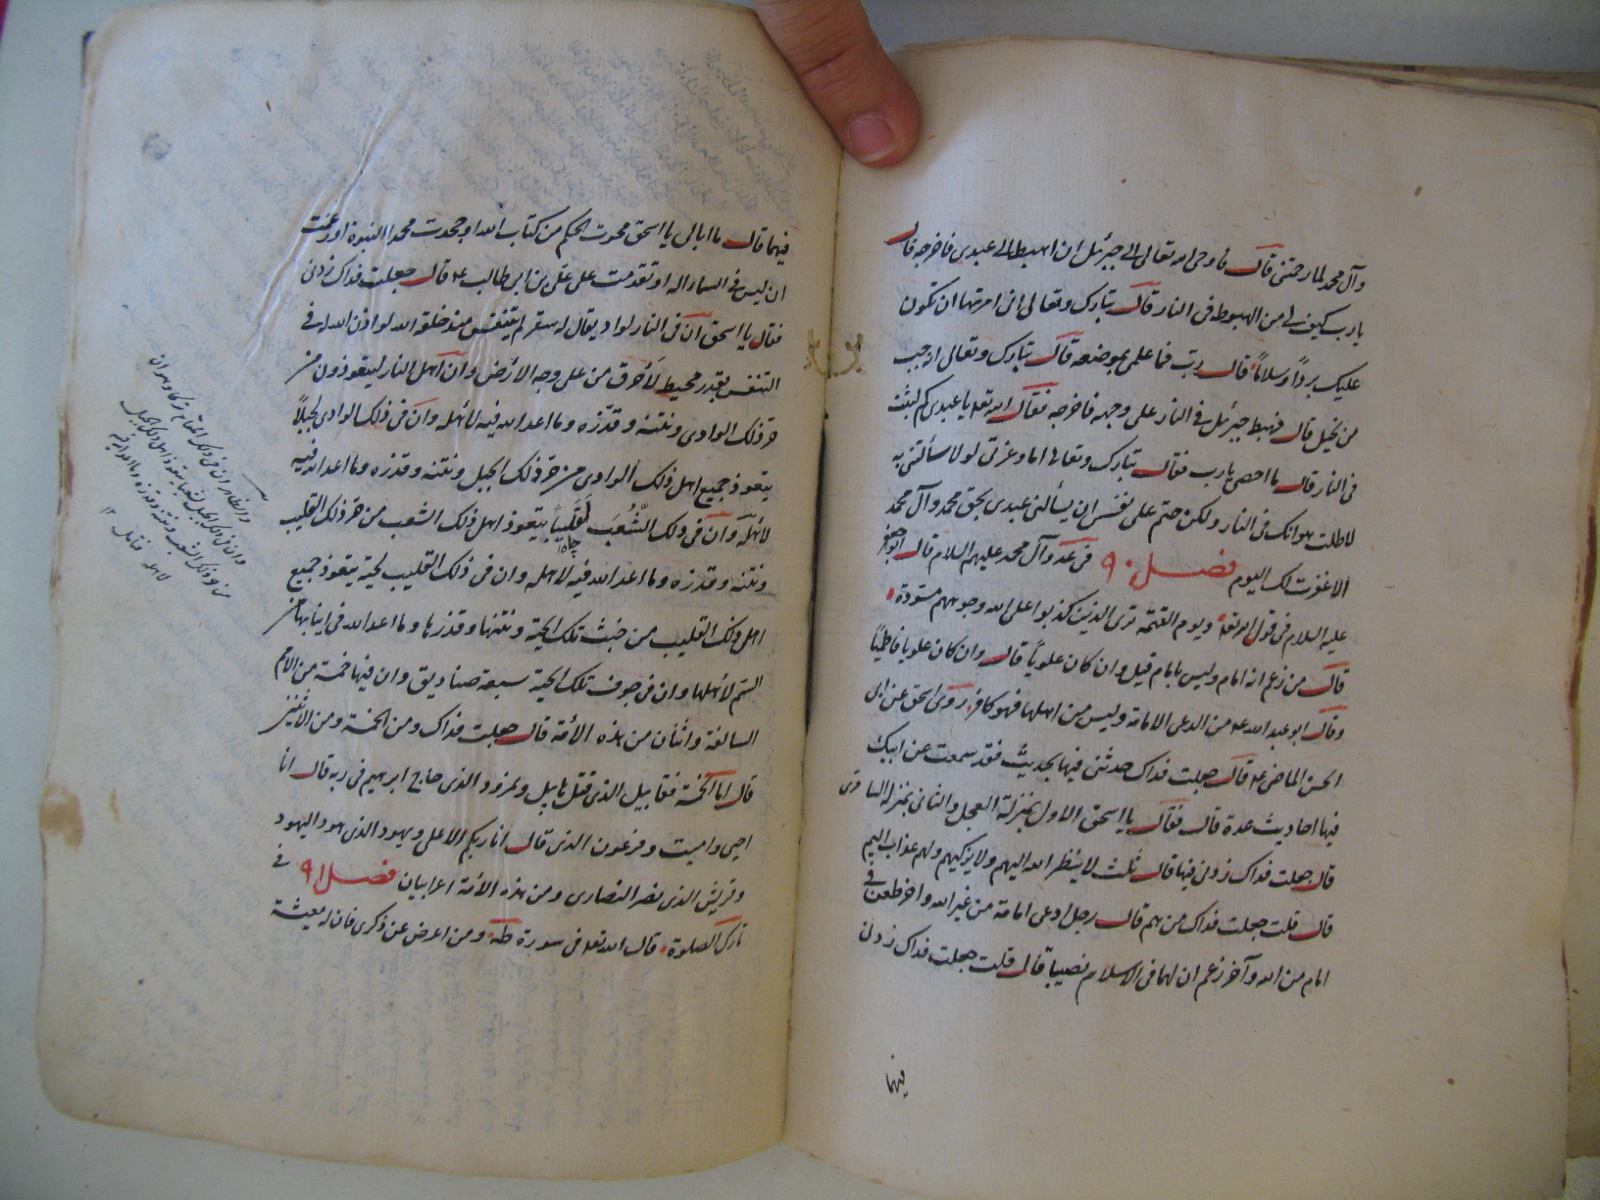 وآل محمد لما رحمتنى قال فاوحى الله تعالى الى جبرئيل ان اهبط الى عبدى فاخرجه قال
يا رب كيف لى من الهبوط فى النار قال تبارك وتعالى انى امرتها ان تكون
عليك برداً وسلاماً قال رب فما علمى بموضعه قال تبارك وتعالى انه جب
من سجيل قال فهبط جبرئيل فى النار على وجهه فاخرجه فقال الله تعا يا عبدى كم لبثت
فى النار قال ما احصى يا رب فقال تبارك وتعالى اما وعزتى لولا سألتنى به
لاطلت هوانك فى النار ولكن حتم على نفسى ان يسألنى عبدى بحق محمد وآل محمد
الا غفرت لك اليوم فصل ٩٠ فى عدو آل محمد عليهم السلام قال ابو جعفر
عليه السلام فى قول الله تعا ويوم القيمة ترى الذين كذبوا على الله وجوههم مسودة
قال من زعم انه امام وليس بامام قيل وان كان علوياً قال وان كان علويا فاطمياً
وقال ابو عبد الله ع من ادعى الامامة وليس من اهلها فهو كافر روى اسحق عن ابى
الحسن الماضى ع قال جعلت فداك حدثنى فيها بحديث فقد سمعت عن ابيك
فيها احاديث عدة قال فقال يا اسحق الاول بمنزلة العجل والثانى بمنزلة السامرى
قال جعلت فداك زدنى فيها قال ثلث لا ينظر الله اليهم ولا يزكيهم ولهم عذاب اليم
قال قلت جعلت فداك من هم قال رجل ادعى امامة من غير الله واخر طعن فى
امام من الله وآخر زعم ان لهما فى الاسلام نصيبا قال قلت جعلت فداك زدنى
فيهما
فيهما قال ما ابالى يا اسحق محوت المحكم من كتاب الله او جحدت محمدا النبوة او زعمت
ان ليس فى السماء اله او تقدمت على على بن ابى طالب ع قال جعلت فداك زدنى
فقال يا اسحق ان فى النار لواديقال له سقر لم يتنفس منذ خلقه الله لو اذن الله له فى
التنفس بقدر مخيط لأحرق من على وجه الارض وان اهل النار ليتعوذون من
حر ذلك الوادى ونتنه وقذره وما اعد الله فيه لاهله وان فى ذلك الوادى لجبلاً
يتعوذ جميع اهل ذلك الوادى من حر ذلك الجبل ونتنه وقذره وما اعد الله فيه
لاهله وان فى ذلك الشعب لقليباً يتعوذ اهل ذلك الشعب من حر ذلك القليب
چاه
ونتنه وقذره وما اعد الله فيه لاهله وان فى ذلك القليب لحية يتعوذ جميع
اهل ذلك القليب من خبث تلك الحية ونتنها وقذرها وما اعد الله فى انيابها من
السم لأهلها وان فى جوف تلك الحية سبعة صناديق وان فيها خمسة من الامم
السالفة واثنان من هذه الأمة قال جعلت فداك ومن الخمسة ومن الاثنين
قال اما الخمسة فقابيل الذى قتل هابيل ونمرود الذى حاج ابرهيم فى ربه قال انا
احيى واميت وفرعون الذى قال انا ربكم الاعلى ويهود الذى هود اليهود
الذى نصر النصارى ومن هذه الأمة اعرابيان فصل ٩١ فى
تارك الصلوة قال الله تعا فى سورة طه ومن اعرض عن ذكرى فان له معيشة
وان فى ذلك الجبل لشعبا يتعوذ اهل ذلك الجبل
من حر ذلك الشعب ونتنه وقذره وما اعد الله فيه
لاهله